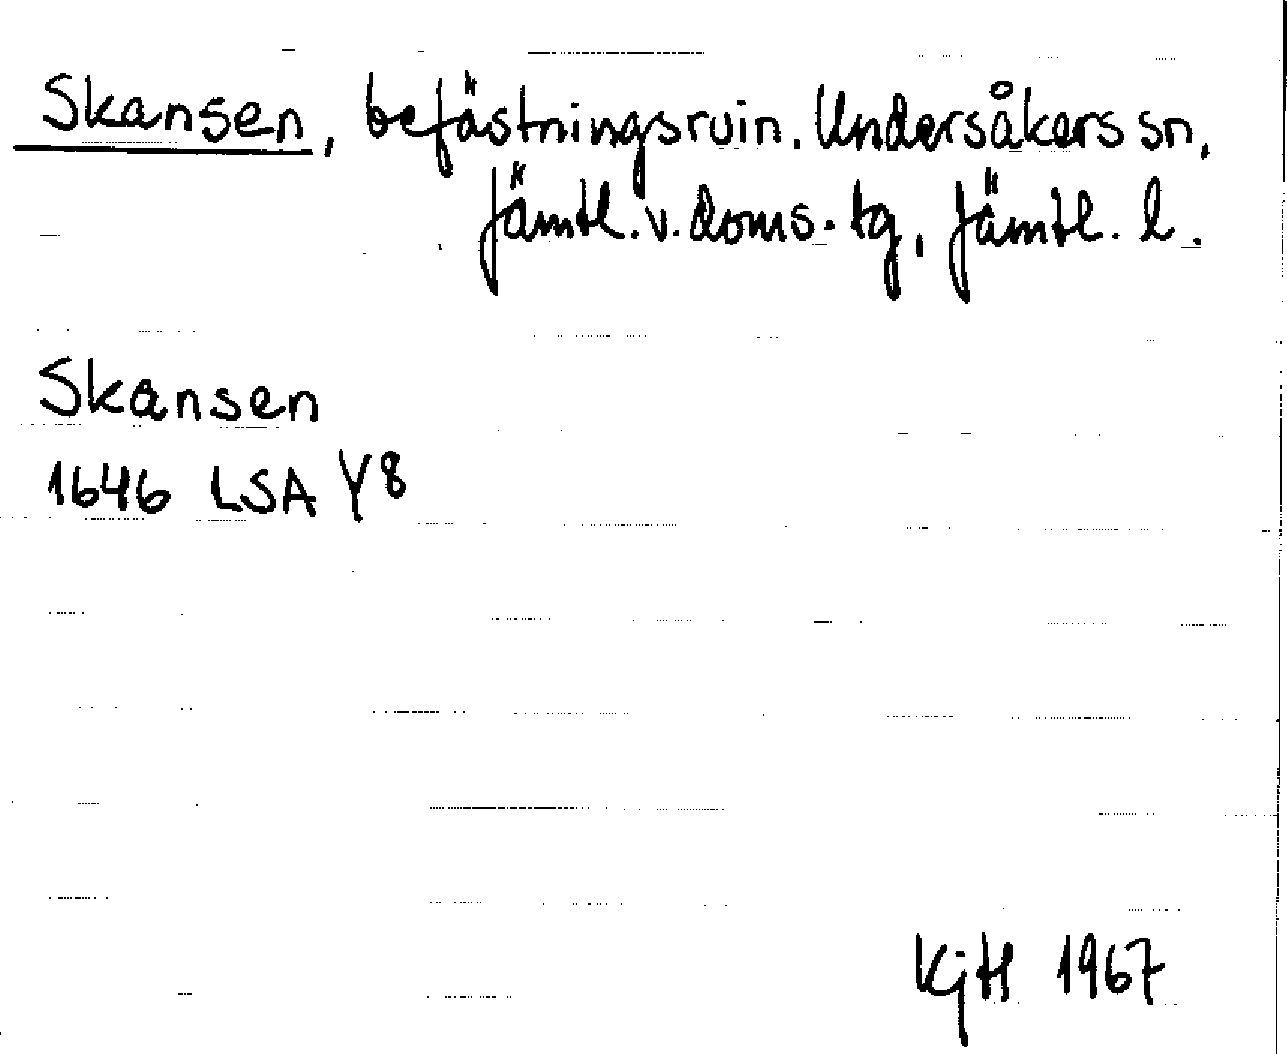 Skansen, befästningsruin. Undersåkers sn,
Jämtl. v. doms. tg, Jämtl. l.
Skansen
1646 LSA Y8
KjH 1967